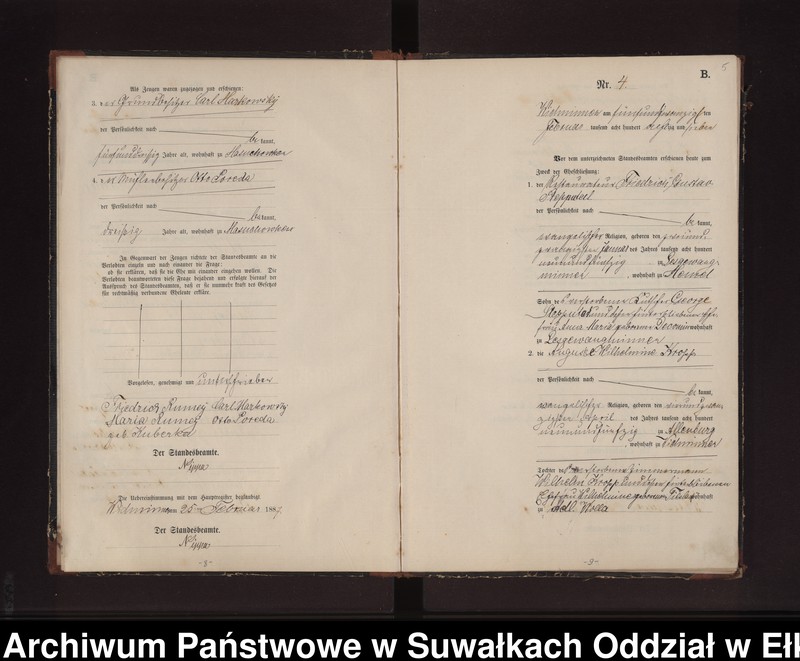 Als Zeugen waren zugezogen und erschienen:
3. der Grundbesitzer Carl Markowsky
der Persönlichkeit nach
be kannt,
fünfunddreißig Jahre alt, wohnhaft zu Masuchowken
4. der Mühlenbesitzer Otto Soreda
der Persönlichkeit nach
be kannt,
dreißig Jahre alt, wohnhaft zu Masuchowken
In Gegenwart der Zeugen richtete der Standesbeamte an die
Verlobten einzeln und nach einander die Frage:
ob sie erklären, daß sie die Ehe mit einander eingehen wollen. Die
Verlobten beantworteten diese Frage bejahend und erfolgte hierauf der
Ausspruch des Standesbeamten, daß er sie nunmehr kraft des Gesetzes
für rechtmäßig verbundene Eheleute erkläre.
Vorgelesen, genehmigt und unterschrieben
Friedrich Rumey Carl Markowsky
Maria Rumey Otto Soreda
geb. Kuberka
Der Standesbeamte.
Die Uebereinstimmung mit dem Hauptregister beglaubigt
Widminnen am 25 Februar 1887.
Der Standesbeamte.
-8-
5
B.
Nr. 4.
Widminnen am fünfundzwanzigsten
Februar tausend acht hundert und um sieben
Vor dem unterzeichneten Standesbeamten erschienen heute zum
Zweck der Eheschließung:
1. der Restaurateur Friedrich Gustav
der Persönlichkeit nach
be kannt,
evangelischer Religion, geboren den
Januar des Jahres tausend acht hundert
neunundfünfzig zu Lesgewang-
minnen, wohnhaft zu
Sohn des verstorbenen Kutscher George
und dessen hinterbliebenen Ehe-
frau Anna Maria geborene wohnhaft
zu Lesgewangminnen
2. die Auguste Wilhelmine Kropp
der Persönlichkeit nach
be kannt,
evangelischer Religion, geboren den zweiundzwan-
zigsten April des Jahres tausend acht hundert
neunundfünfzig zu Allenburg
, wohnhaft zu Widminnen
Tochter des verstorbenen Zimmermann
Wilhelm Kropp und dessen hinterbliebenen
Ehefrau Wilhelmine geborene wohnhaft
zu Adl. Woda
-9-
Archiwum Państwowe w Suwałkach Oddział w Ełk